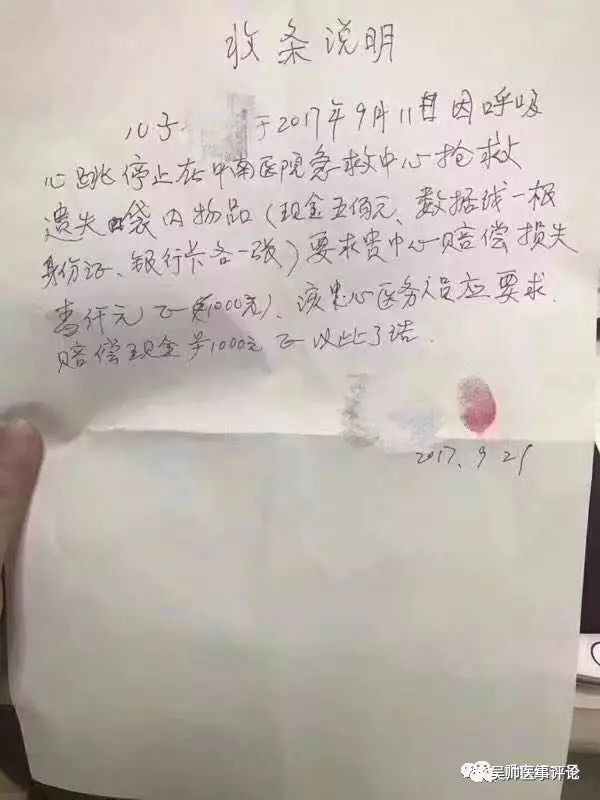 收条说明
儿子 于2017年9月11日因呼吸
心跳停止在中南医院急救中心抢救
遗失 袋内物品(现金五佰元、数据线一根
身份证、银行卡各一张)要求贵中心赔偿损失
壹仟元正(¥1000元)、该中心医务人员应要求.
赔偿现金¥1000元正以此了结.
2017.9 21
吴帅医事评论